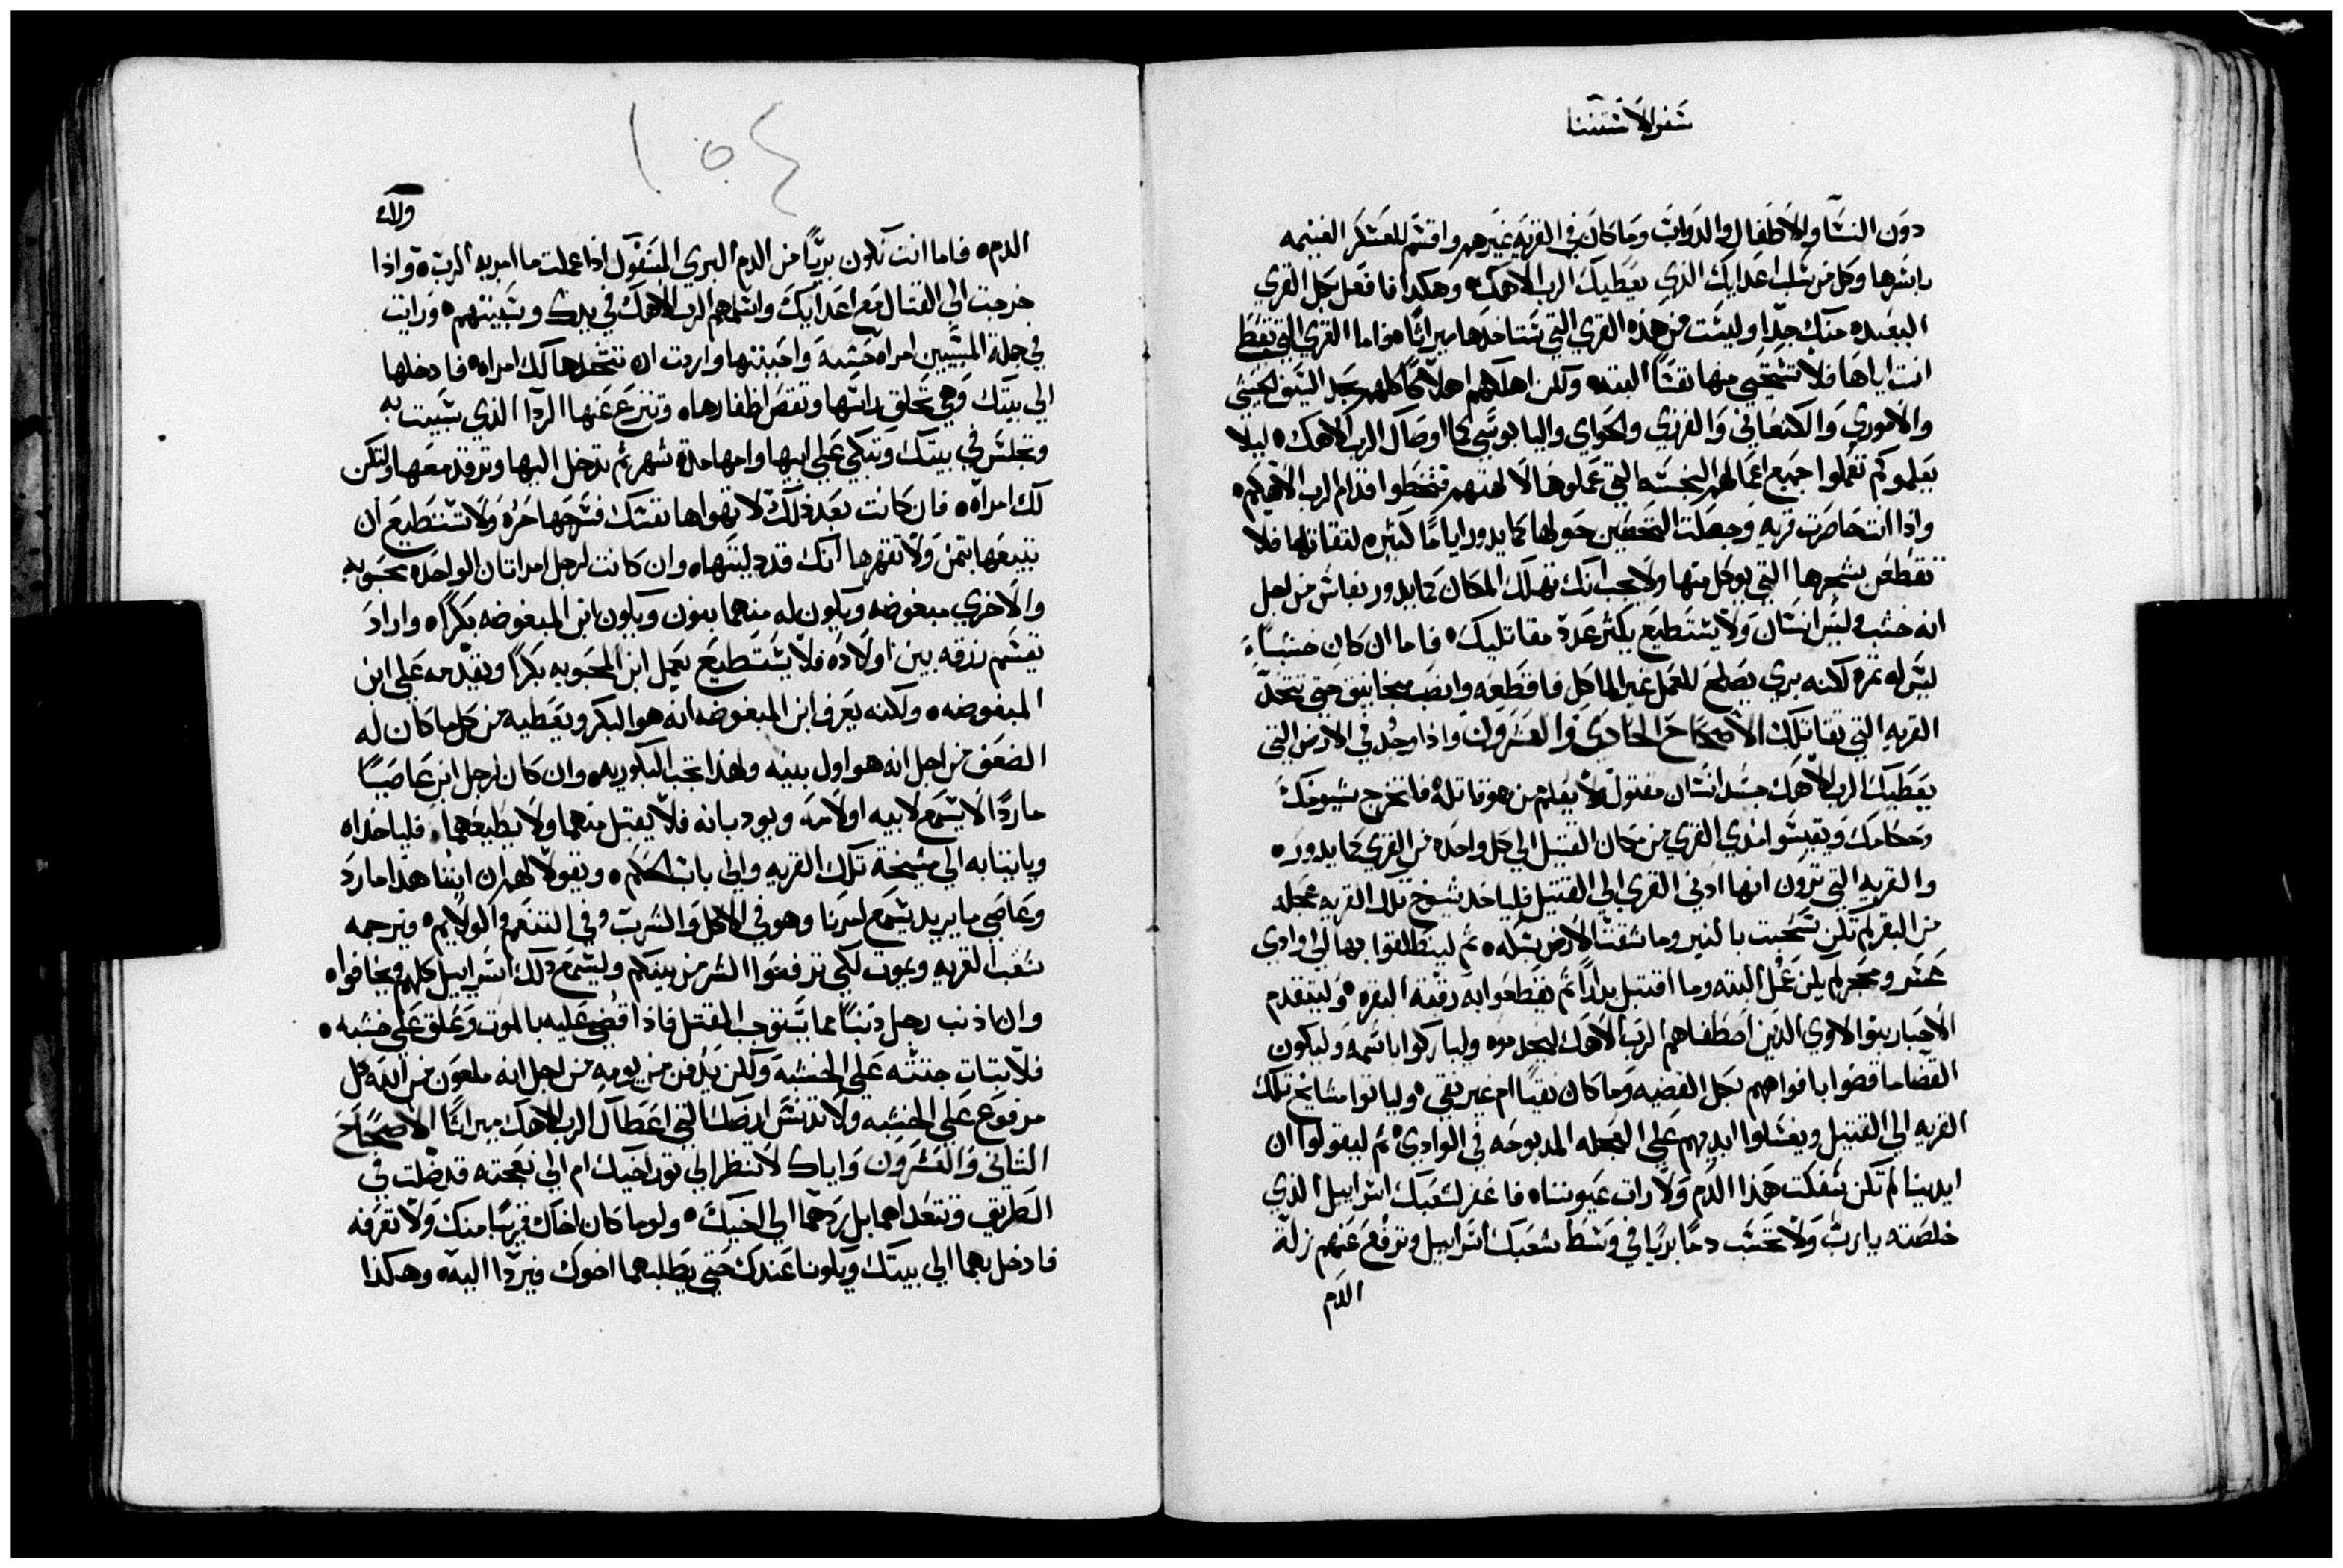 سفر الاستثنا
دون النسا والاطفال والدواب وما كان في القريه غيرهم واقسم للعسكر الغنيمه
باسرها وكل من سلب اعدايك الذي يعطيك الرب الاهك ٥ وهكذا فافعل بكل القري
البعيده منك جدا وليست من هذه القري التي ستاخذها ميراثا ٥ فاما القري التي تعطا
انت اياها فلا تستحيي منها نفسا البته ٥ ولكن اهلكهم اهلاكا كلهم بحد السيف الحيثي
والاموري والكنعاني والفرزي والحواي واليابوسي كما اوصاك الرب الاهك ٥ ليلا
يعلموكم تعملوا جميع اعمالهم النجسه التي عملوها لالهتهم فتخطوا قدام الرب الاهكم ٥
واذا انت حاصرت قريه وجعلت التحصين حولها كما يدور اياما كثيره لتقاتلها فلا
تقطعن شجرها التي يوكل منها ولا يجب انك تهلك المكان كما يدور بفاس من اجل
انه خشب وليس انسان ولا يستطيع يكثر عدة مقاتليك ٥ فاما ان كان خشبا
ليس له ثمره لكنه بري يصلح للعمل غير الماكل فاقطعه وانصب مجانيق حتي تتخد
القريه التي تقاتلك الاصحاح الحادي والعشرون واذا وجد في الارض التي
يعطيك الرب الاهك جسد انسان مقتول لا يعلم من هو قاتله فلتخرج شيوخك
وحكامك ويقيسوا مدي القري من مكان القتيل الي كل واحده من القري كما يدور ٥
والقريه التي ترون انها ادني القري الي القتيل فلياخد شيوخ تلك القريه عجله
من البقر لم تكن سحبت بالنير وما شقت الارض بسكه ٥ ثم لينطلقوا بها الي وادي
عسر ومحجر لم يكن عمل البته وما اقتبل بدارا ثم يقطعوا به رقبة البقره ٥ وليتقدم
الاحبار بنوا لاوي الذين اصطفاهم الرب الاهك ليخدموه وليباركوا باسمه وليكون
القضا ما قضوا بافواههم بكل القضيه وما كان نقيا ام غير نقي ٥ ولياتوا مشايخ تلك
القريه الي القتيل ويغسلوا ايديهم علي العجله المدبوحه في الوادي ٥ ثم ليقولوا ان
ايدينا لم تكن سفكت هذا الدم ولا رات عيوننا ٥ فاغفر لشعبك اسراييل الذي
خلصته يارب ولا تحسب دما بريا في وسط شعبك اسراييل وترفع عنهم زلة
الدم
١٥٤
الدم ٥ فاما انت تكون بريا من الدم البري المسفوك اذا عملت ما امر به الرب ٥ واذا
خرجت الي القتال مع اعدايك واسلمهم الرب الاهك في يدك وسبيتهم ٥ ورايت
في جملة المسبيين امراه حسنه واحببتها واردت ان تتخدها لك امراه ٥ فادخلها
الي بيتك وهي تحلق راسها وتقص اظفارها ٥ وتنزع عنها الردا الذي سبيت به
وتجلس في بيتك وتبكي علي ابيها وامها مدة شهر ثم تدخل اليها وترقد معها ولتكن
لك امراه ٥ فان كانت بعد ذلك لا تهواها نفسك فسرحها حره ولا تستطيع ان
تبيعها بثمن ولا تقهرها انك قد دليتها ٥ وان كانت لرجل امراتان الواحده محبوبه
والاخري مبغوضه ويكون له منهما بنون ويكون ابن المبغوضه بكرا ٥ واراد
يقسم رزقه بين اولاده فلا يستطيع يعمل ابن المحبوبه بكرا ويقدمه علي ابن
المبغوضه ٥ ولكنه يعرف ابن المبغوضه انه هو البكر ويعطيه من كل ما كان له
الضعف من اجل انه هو اول بنيه ولهذا تجب البكوريه ٥ وان كان لرجل ابن عاصيا
ماردا لا يسمع لابيه او لامه ويودبانه فلا يقبل منهما ولا يطيعهما ٥ فلياخداه
وياتيا به الي مشيخة تلك القريه والي باب الحكم ٥ ويقولا لهم ان ابننا هذا مارد
وعاصي ما يريد يسمع امرنا وهو في الاكل والشرب وفي التنعم والولايم ٥ فيرجمه
شعب القريه ويموت لكي ترفعوا الشر من بينكم وليسمع ذلك اسراييل كلهم ويخافوا ٥
وان اذنب رجل دنبا مما يستوجب القتل فاذا قضي عليه بالموت وعلق علي خشبه ٥
فلا تبات جثته علي الخشبه ولكن يدفن من يومه من اجل انه ملعون من الله كل
مرفوع علي الخشبه ولا تدنس ارضك التي اعطاك الرب الاهك ميراثا الاصحاح
الثاني والعشرون واياك لا تنظر الي تور اخيك ام الي نعجته قد ضلت في
الطريق وتتعداهما بل ردهما الي اخيك ٥ ولو ما كان اخاك قريبا منك ولا تعرفه
فادخل بهما الي بيتك ويكونا عندك حتي يطلبهما اخوك فيردا اليه ٥ وهكذا